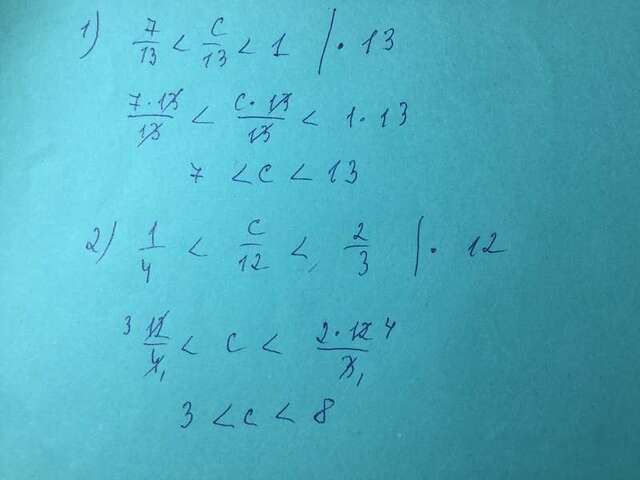 1) 7/13 < c/13 < 1 | · 13
7·13/13 < c·13/13 < 1·13
7 < c < 13
2) 1/4 < c/12 < 2/3 | · 12
3 12/4 1 < c < 2·12 4/3 1
3 < c < 8